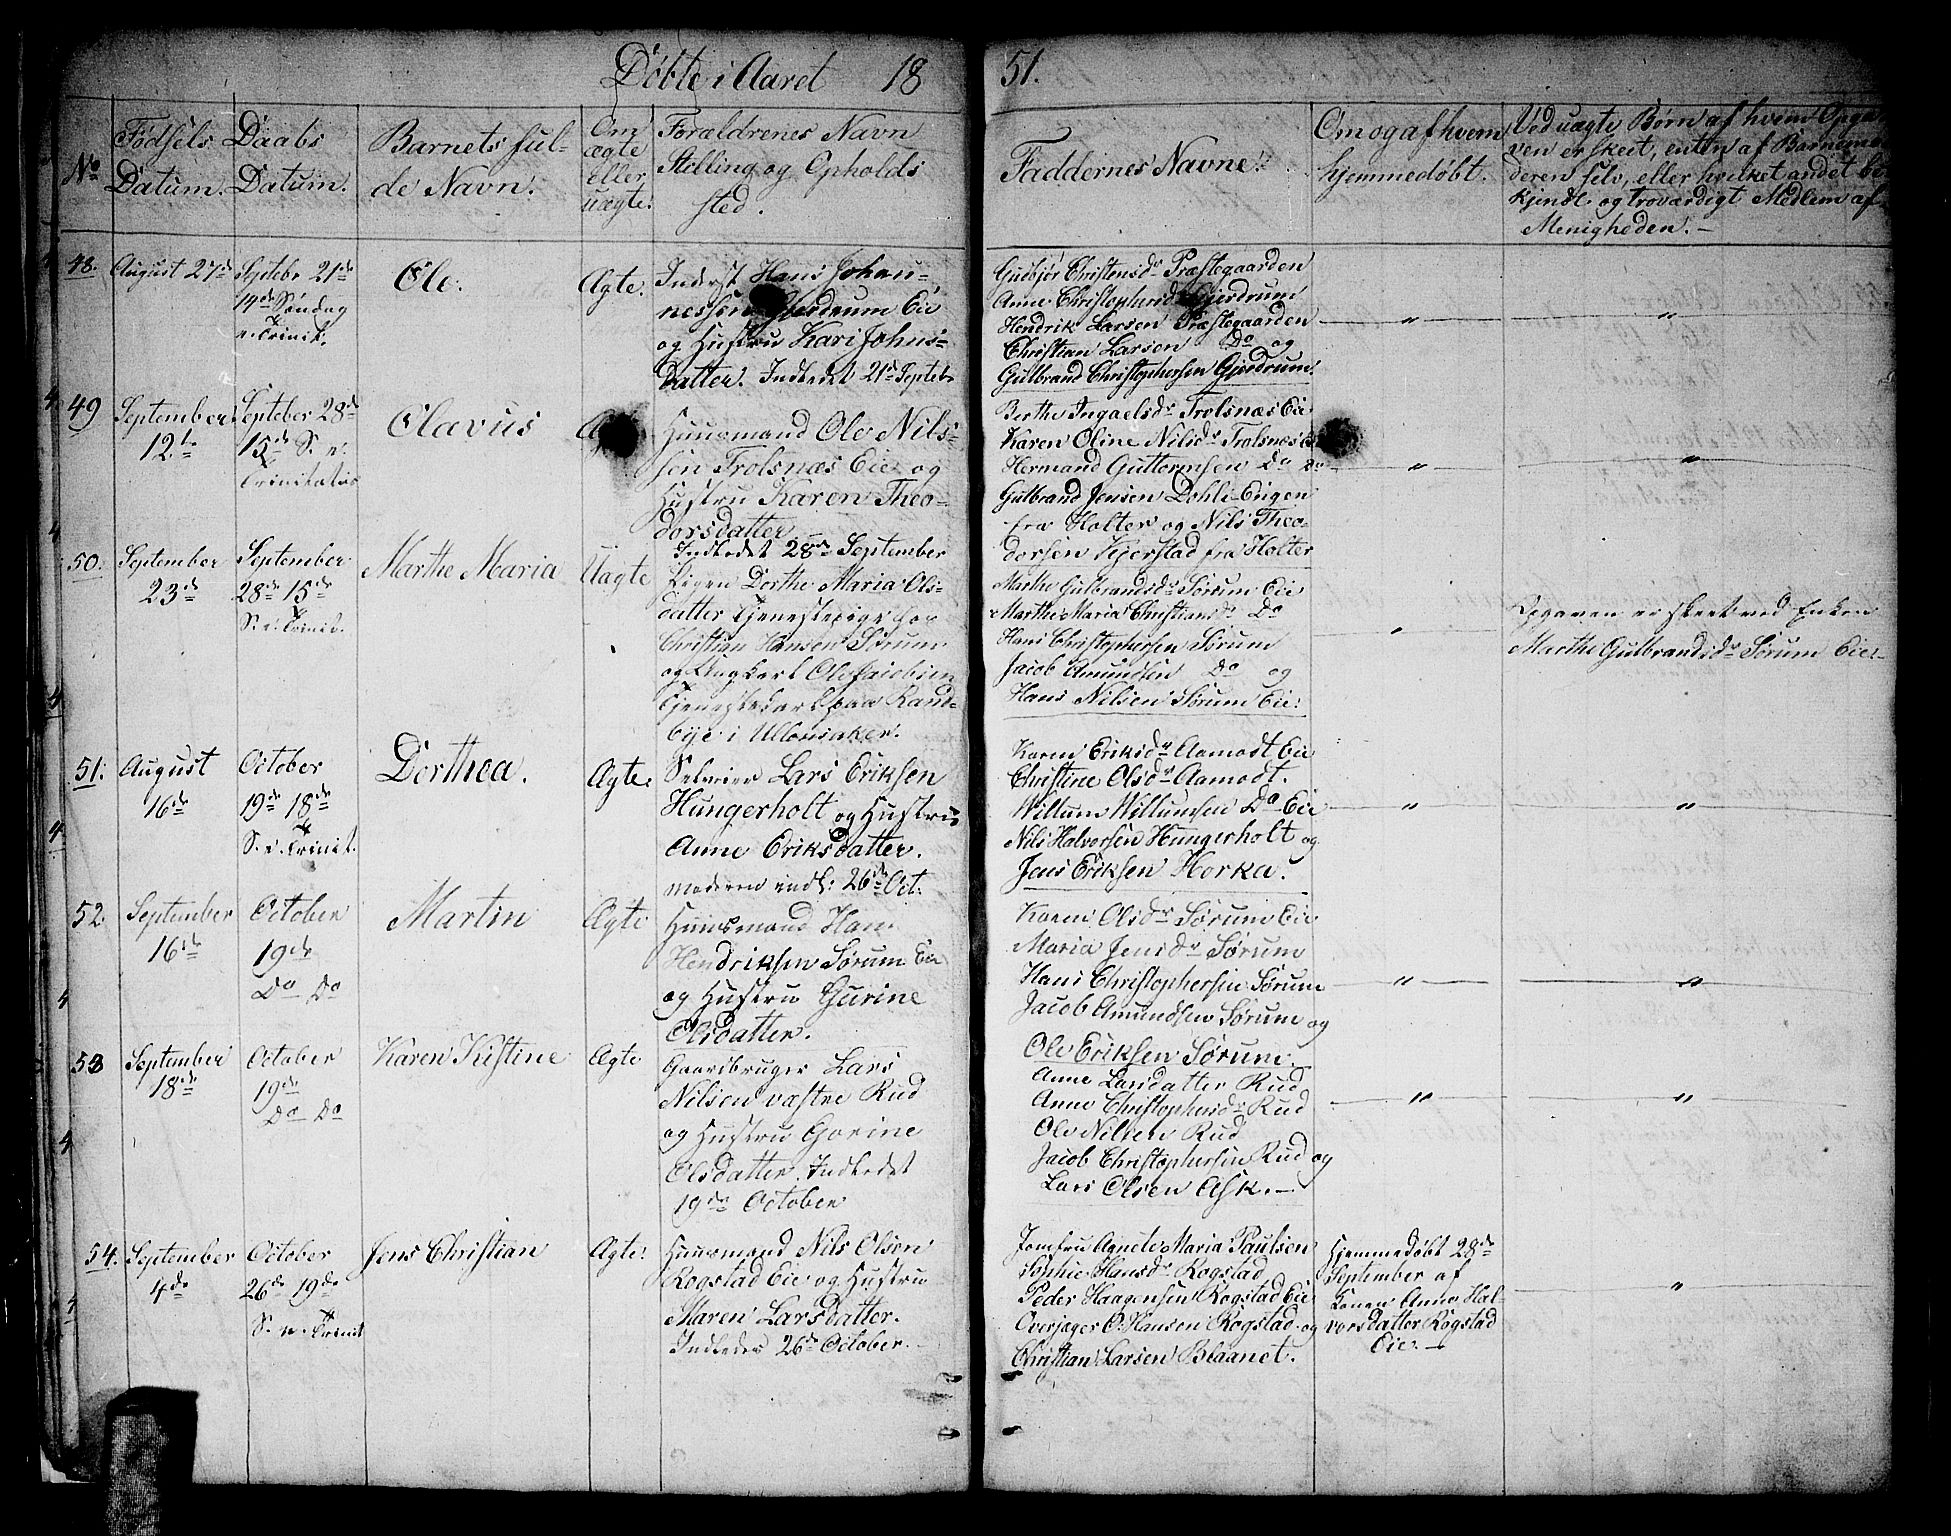 Døbte i Aaret 18 51.
No
Fødsels Datum.
Daabs Datum.
Barnets ful-
de Navn.
Om
ægte
eller
uægte.
Forældrenes Navn
Stilling og Opholds
sted.
Faddernes Navne.
Om og af hvem
hjemmedøbt.
Ved uægte Børn af hvem Opga-
ven er skeet, enten af Barnemo-
deren selv, eller hvilket andet be-
kjendt og troværdigt Medlem af
Menigheden.
48.
August 27de
Septebr 21de
14de Søndag
e. Trinit.
Ole.
Ægte.
Inderst Hans Johan-
nessen Gjerdrum Eie
og Hustru Kari Johns-
datter. Indledet 21de Septeb.
Gudbjør Christensdr Præstegaarden
Anne Christophersd Gjerdrum
Hendrik Larsen Præstegaarden
Christian Larsen Do og
Gulbrand Christophersen Gjerdrum.
"
"
49
September
12te
Septeber 28de
15de S. e.
Trinitatis
Olavus
Huusmand Ole Nils-
sen Trolsnæs Eie og
Hustru Karen Theo-
dorsdatter
Indledet 28de September
Berthe Ingaelsdr Trolsnæs Eie
Karen Oline Nilsdr Trolsnæs
Hermand Guttormsen Do Do
Gulbrand Jensen Dohli-Engen
fra Holter og Nils Theo-
dorsen Kjerstad fra Holter
"
"
50.
September
23de
September
28de 15de
S. e. Trinit.
Marthe Maria
Uægte
Pigen Dorthe Maria Ols-
datter Tjenestepige hos
Christian Hansen Sørum
og Ungkarl Ole Jacobsen
Tjenestekarl paa Rand-
bye i Ullensaker.
Marthe Gulbrandsdr Sørum Eie
Marthe Maria Christiansdr Do
Hans Christophersen Sørum
Jacob Amundsen Do og
Hans Nilsen Sørum Eie.
"
Opgaven er skeet ved Enken
Marthe Gulbrandsdr Sørum Eie.
51.
August
16de
October
19de 18de
S. e. Trinit.
Dorthea.
Ægte.
Selveier Lars Eriksen
Hungerholt og Hustru
Anne Eriksdatter.
moderen indl: 26de Oct.
Karen Eriksdr Aamodt Eie
Christine Olsdr Aamodt.
Willum Willumsen Do Eie
Nils Halvorsen Hungerholt og
Jens Eriksen Horka.
"
"
52.
September
16de
October
19de
Do Do
Martin
Ægte
Huusmand Hans
Hendriksen Sørum Eie
og Hustru Gurine
Olsdatter.
Karen Olsdr Sørum Eie
Maria Jensdr Sørum
Hans Christophersen Sørum
Jacob Amundsen Sørum og
Ole Eriksen Sørum.
"
"
53
September
18de
October
19de
Do Do
Karen Kistine
Ægte
Gaardbruger Lars
Nilsen væstre Rud
og Hustru Gorine
Olsdatter. Indledet
19de October
Anne Larsdatter Rud
Anne Christophersdr Rud
Ole Nilsen Rud
Jacob Christophersen Rud og
Lars Olsen Ask.
"
"
54.
September
4de
October
26de 19de
S. e. Trinit
Jens Christian
Ægte.
Huusmand Nils Olsen
Rogstad Eie og Hustru
Maren Larsdatter.
Indledes 26de October.
Jomfru Agnete Maria Paulsen
Sophie Hansdr Rogstad
Peder Haagensen Rogstad Eie
Overjæger O. Hansen Rogstad og
Christian Larsen Blaanet.
Hjemmedøbt 28de
September af
Konen Anne Hal-
vorsdatter Rogstad
Eie.
"